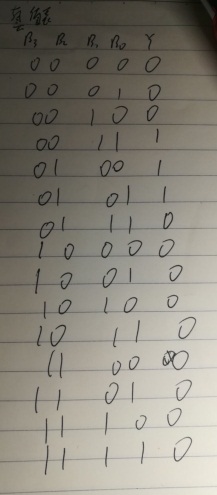 真值表
B₃ B₂ B₁ B₀ Y
0 0 0 0 0
0 0 0 1 0
0 0 1 0 0
0 0 1 1 1
0 1 0 0 1
0 1 0 1 1
0 1 1 1 0
1 0 0 0 0
1 0 0 1 0
1 0 1 0 0
1 0 1 1 0
1 1 0 0 0
1 1 0 1 0
1 1 1 0 0
1 1 1 1 0